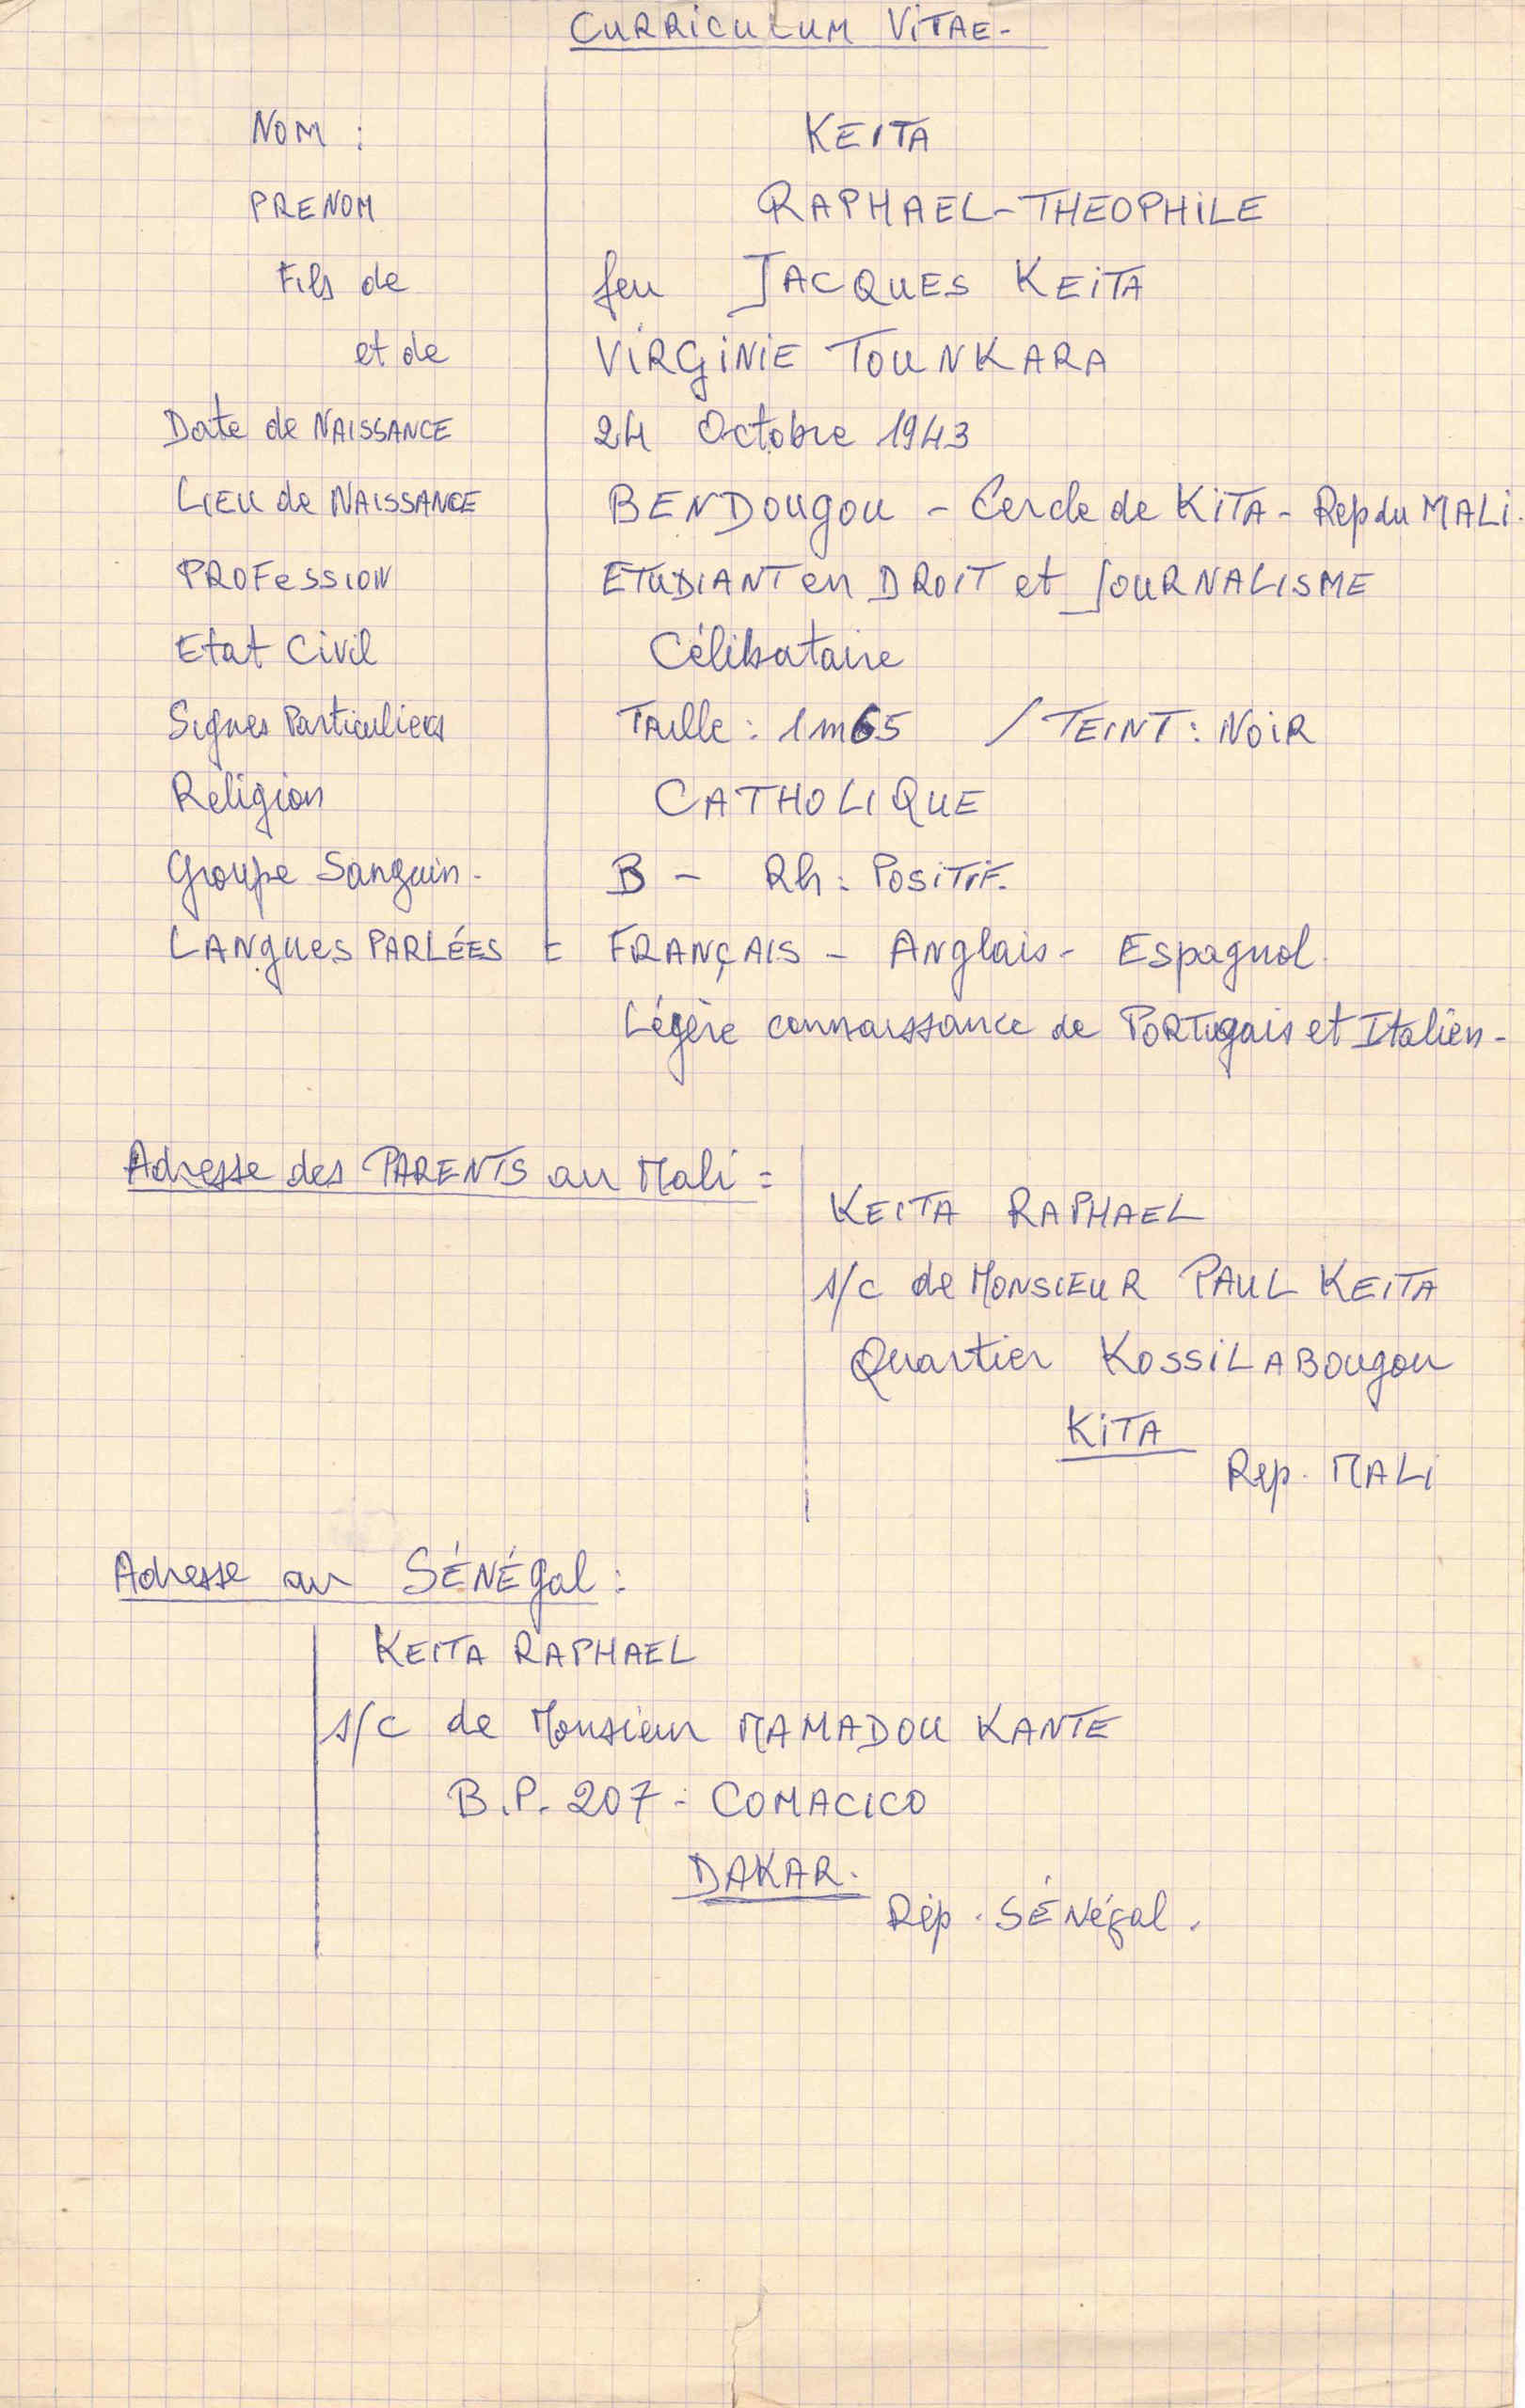 CURRICULUM VITAE -
NOM : KEITA
PRENOM RAPHAEL-THEOPHILE
Fils de feu JACQUES KEITA
et de VIRGINIE TOUNKARA
Date de NAISSANCE 24 Octobre 1943
LIEU de NAISSANCE BENDOUGOU - Cercle de KITA - Rep du MALI.
PROFESSION ETUDIANT en DROIT et JOURNALISME
Etat Civil Célibataire
Signes Particuliers TAille : 1m65 / TEINT : NOIR
Religion CATHOLIQUE
Groupe Sanguin - B - Rh : POSITIF.
LANgues PARLÉES FRANÇAIS - Anglais - Espagnol.
Légère connaissance de PORTUgais et Italien -
Adresse des PARENTS au Mali =
KEITA RAPHAEL
s/c de MONSIEUR PAUL KEITA
Quartier KOSSILABOUgou
KITA
Rep. MALI
Adresse au SÉNÉgal :
KEITA RAPHAEL
s/c de Monsieur MAMADOU KANTE
B.P. 207 - COMACICO
DAKAR.
Rép. SÉNégal.